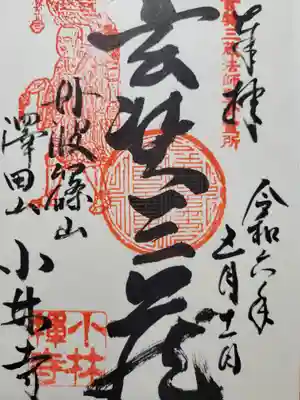 奉拝
令和六年
五月十二日
玄奘三蔵
丹波篠山
澤田山
小林寺
小林
禅寺